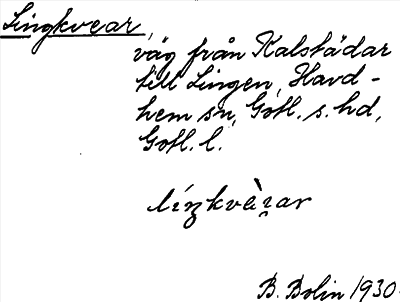 Lingkvear,
väg från Kalstädar
till Lingen, Havd-
hem sn, Gotl. s. hd,
Gotl. l.
B. Bolin 1930.